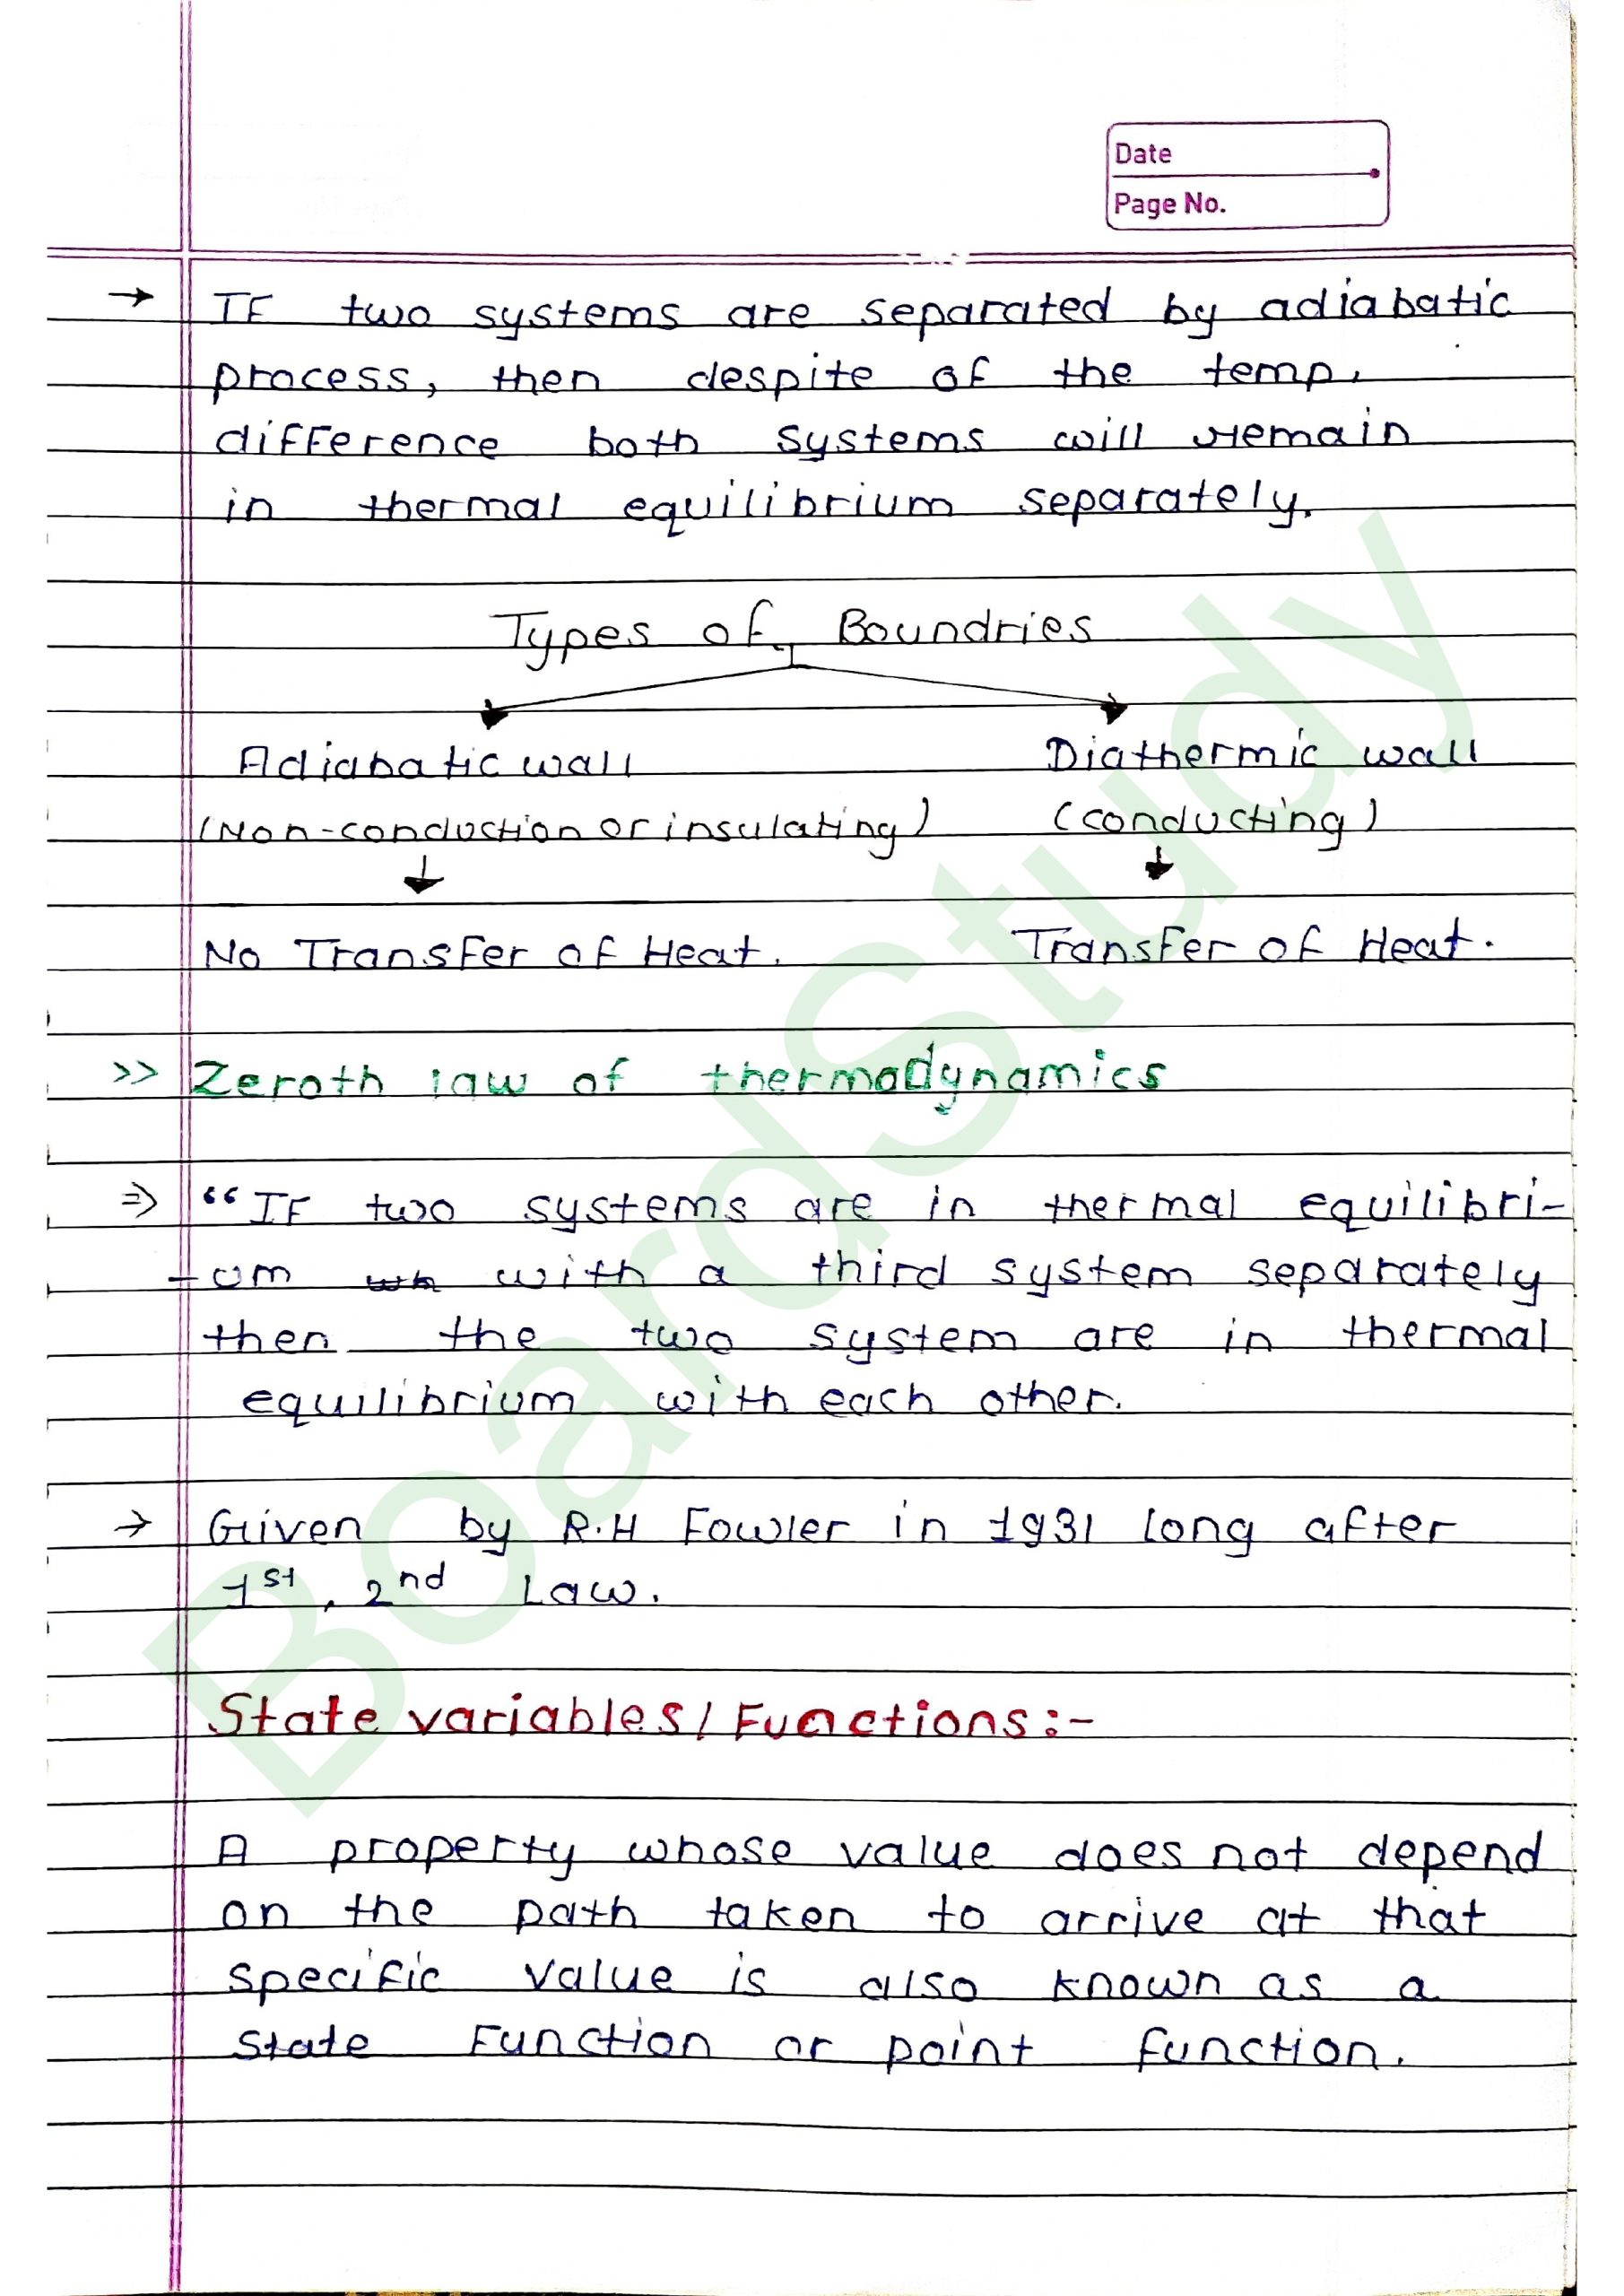 Date
Page No.
→ IF two systems are separated by adiabatic
process, then despite of the temp.
difference both systems will remain
in thermal equilibrium separately.
Types of Boundries
Adiabatic wall Diathermic wall
(Non-conduction or insulating) (conducting)
No Transfer of Heat. Transfer of Heat.
>> Zeroth law of thermodynamics
⇒ “IF two systems are in thermal equilibri-
-um wh with a third system separately
then the two system are in thermal
equilibrium with each other.
→ Given by R.H Fowler in 1931 long after
1st, 2nd Law.
State variables/Functions:-
A property whose value does not depend
on the path taken to arrive at that
specific value is also known as a
state function or point function.
BoardStudy